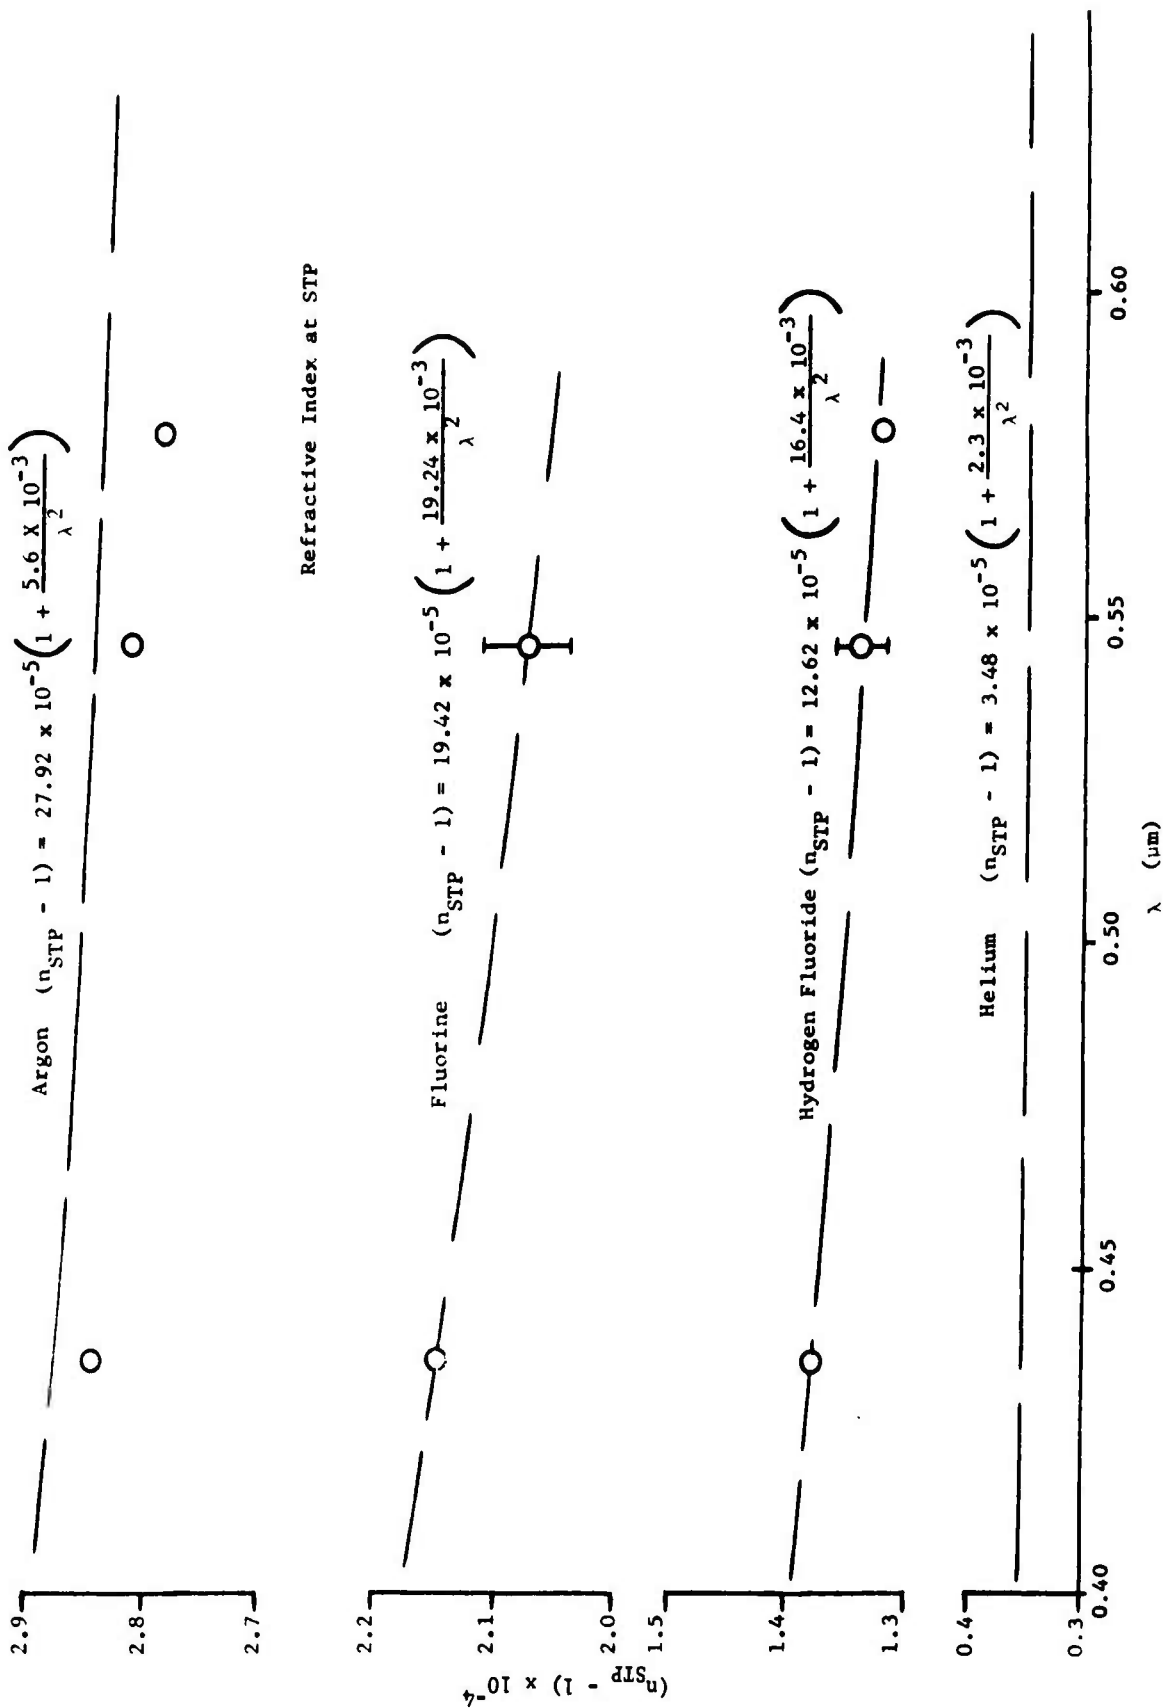 Argon (nSTP - 1) = 27.92 x 10⁻⁵ (1 + 5.6 X 10⁻³ / λ²)
Refractive Index at STP
Fluorine (nSTP - 1) = 19.42 x 10⁻⁵ (1 + 19.24 x 10⁻³ / λ²)
Hydrogen Fluoride (nSTP - 1) = 12.62 x 10⁻⁵ (1 + 16.4 x 10⁻³ / λ²)
Helium (nSTP - 1) = 3.48 x 10⁻⁵ (1 + 2.3 x 10⁻³ / λ²)
(nSTP - 1) x 10⁻⁴
2.9
2.8
2.7
2.2
2.1
2.0
1.5
1.4
1.3
0.4
0.3
0.40 0.45 0.50 0.55 0.60
λ (μm)